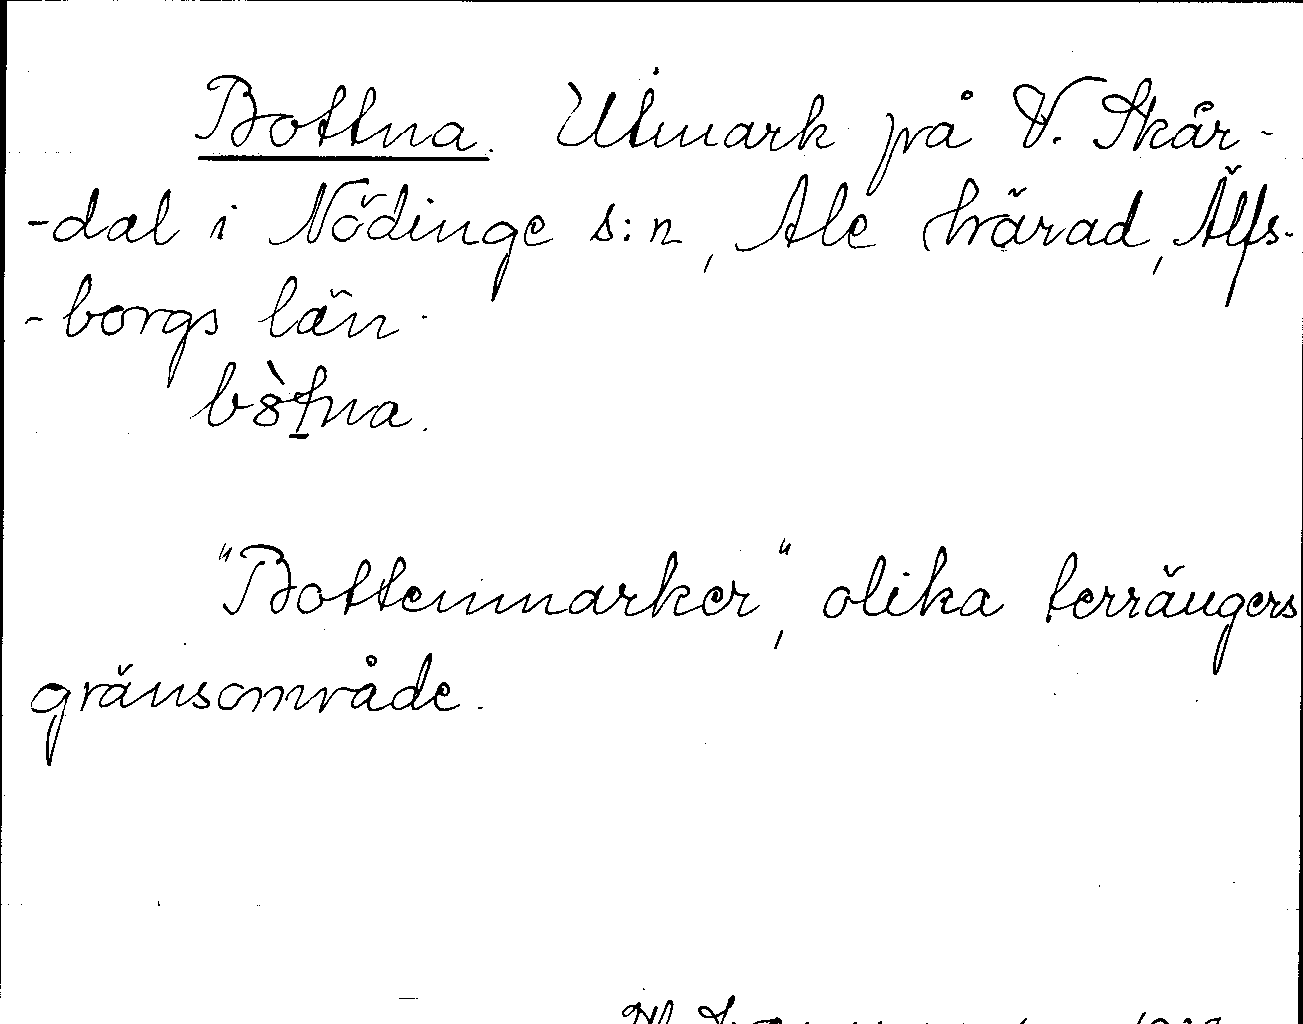 Bottna. Utmark på V. Skår-
-dal i Nödinge s:n, Ale härad, Älfs-
-borgs län.
"Bottenmarker", olika terrängers
gränsområde.